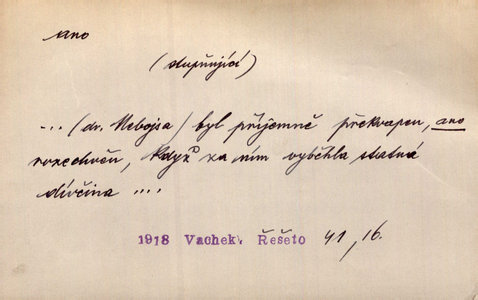 ano
(stupňující)
... (dr. Nebojsa) byl příjemně překvapen, ano
rozechvěn, když za ním vyběhla statná
dívčina ....
1918 Vachek, Řešeto 41, 16.